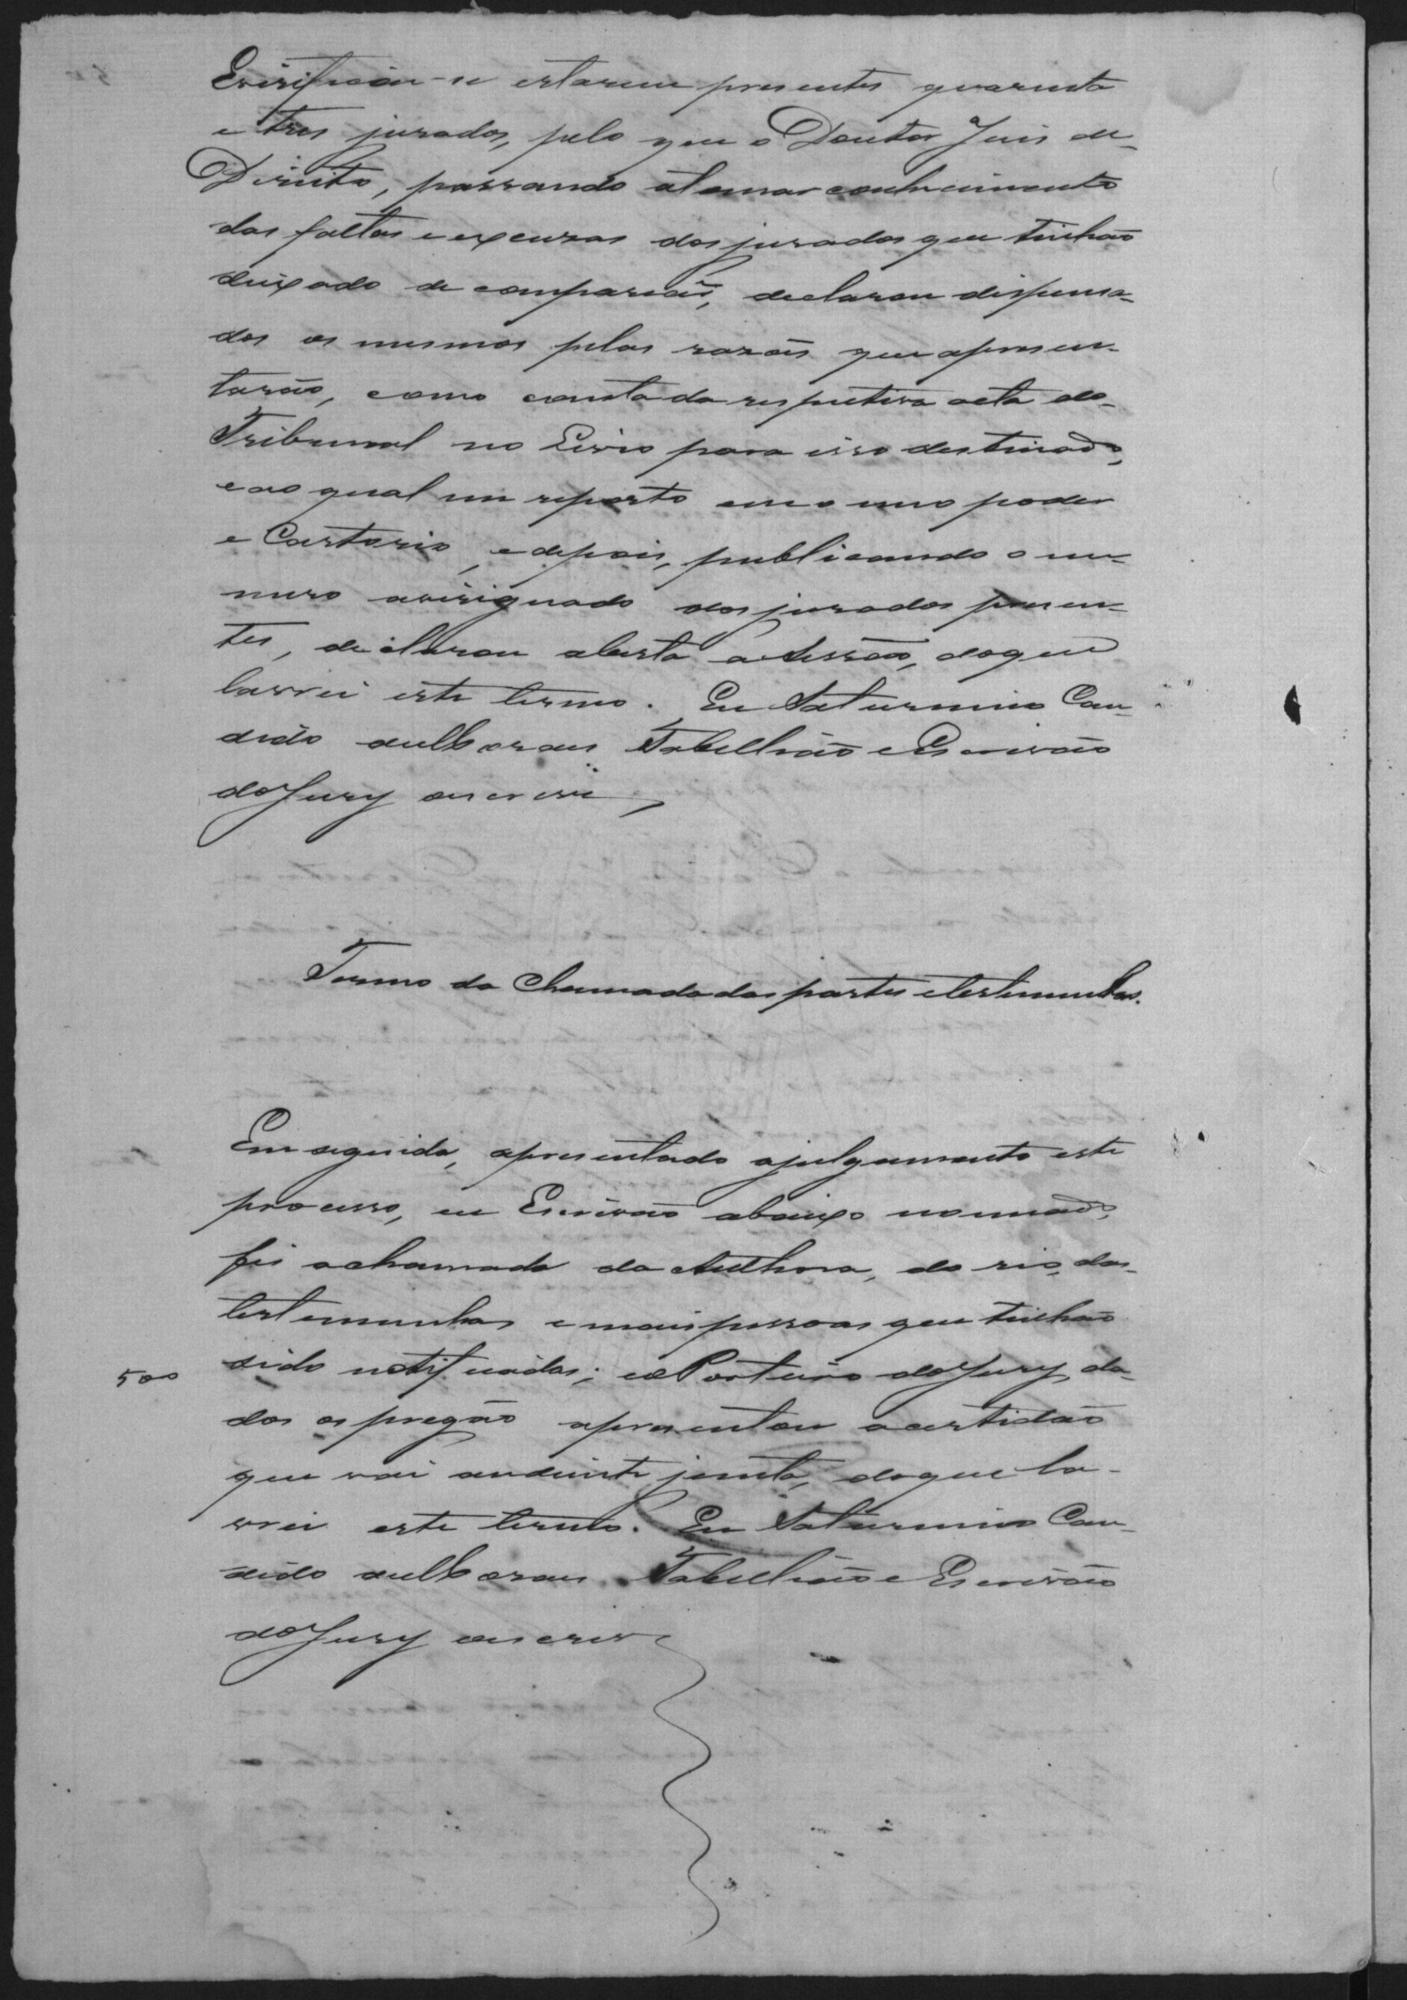 E verificou-se estarem presentes quarenta
e tres jurados, pelo que o Doutor Juis de
Direito, passando a tomar conhecimento
das faltas e excusas dos jurados que tinhão
deixado de comparecer, declarou dispensa-
dos os mesmos pelas razões que apresen-
tarão, como consta da respectiva acta do
Tribunal no Livro para isso destinado,
e ao qual me reporto em o meu poder
e Cartorio, e depois, publicando o nu-
mero averiguado dos jurados presen-
tes, declarou aberta a Sessão, do que
lavrei este termo. Eu Saturnino Can-
dido Tabellião e Escrivão
do Jury escrevi
Termo da Chamada das partes e testemunhas.
Em seguida, apresentado a julgamento este
processo, eu Escrivão abaixo nomeado,
fis a chamada da Authora, do rio, das
testemunhas e mais pessoas que tinhão
500
sido notificadas; e o Porteiro do Jury, da-
dos os pregão apresentou a certidão
que vai adiante junta, do que la-
vrei este termo. Eu Saturnino Can-
dido Tabellião e Escrivão
do Jury escrevi